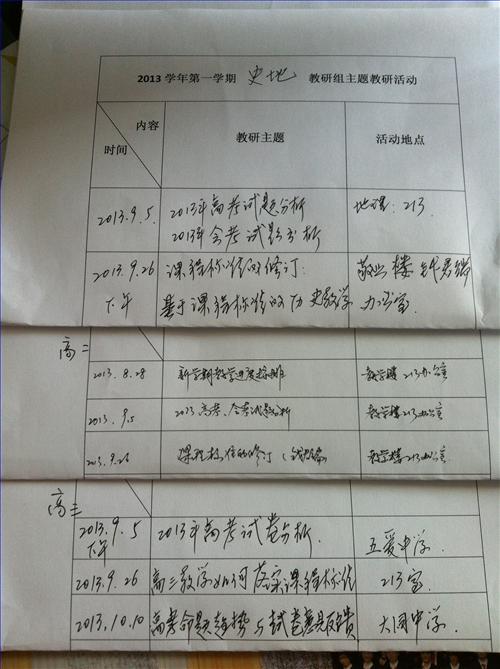 2013 学年第一学期 史地 教研组主题教研活动
内容
时间
教研主题
活动地点
2013.9.5
2013年高考试题分析
2013年会考试题分析
地理：213
2013.9.26
下午
课程标准的修订：
基于课程标准的历史教学
敬业楼
办公室
高二
2013.8.28
新学期教学进度安排
教学楼213办公室
2013.9.5
2013高考、会考试题分析
教学楼213办公室
2013.9.26
课程标准的修订
教学楼213办公室
高三
2013.9.5
下午
2013年高考试卷分析
五爱中学
2013.9.26
高三教学如何落实课程标准
213室
2013.10.10
高考命题趋势与试卷意见反馈
大同中学